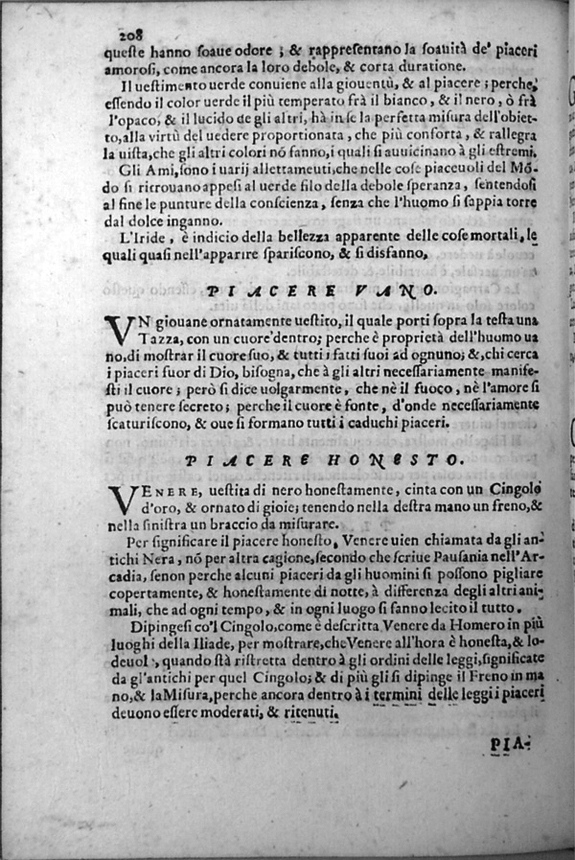 208
queſte hanno ſoaue odore ; & rappreſentano la ſoauità de' piaceri
amoroſi, come ancora la loro debole, & corta duratione.
Il ueſtimento uerde conuiene alla giouentù, & al piacere ; perche,
eſſendo il color uerde il più temperato frà il bianco, & il nero, ò frà
l'opaco, & il lucido de gli altri, hà in ſe la perfetta miſura dell'obiet-
to, alla virtù del uedere proportionata, che più conforta, & rallegra
la uiſta, che gli altri colori nō fanno, i quali ſi auuicinano à gli eſtremi.
Gli Ami, ſono i uarij allettameuti, che nelle coſe piaceuoli del Mō-
do ſi ritrouano appeſi al uerde filo della debole ſperanza, ſentendoſi
al fine le punture della conſcienza, ſenza che l'huomo ſi ſappia torre
dal dolce inganno.
L'Iride, è indicio della bellezza apparente delle coſe mortali, le
quali quaſi nell'apparire ſpariſcono, & ſi disfanno,
PIACERE VANO.
VN giouane ornatamente ueſtito, il quale porti ſopra la teſta una
Tazza, con un cuore dentro; perche è proprietà dell'huomo ua
no, di moſtrar il cuore ſuo, & tutti i fatti ſuoi ad ognuno; &, chi cerca
i piaceri fuor di Dio, biſogna, che à gli altri neceſſariamente manife-
ſti il cuore ; però ſi dice uolgarmente, che nè il fuoco, nè l'amore ſi
può tenere ſecreto; perche il cuore è fonte, d'onde neceſſariamente
ſcaturiſcono, & oue ſi formano tutti i caduchi piaceri.
PIACERE HONESTO.
VENERE, ueſtita di nero honeſtamente, cinta con un Cingolo
d'oro, & ornato di gioie; tenendo nella deſtra mano un freno, &
nella ſiniſtra un braccio da miſurare.
Per ſignificare il piacere honeſto, Venere uien chiamata da gli an-
tichi Nera, nō per altra cagione, ſecondo che ſcriue Pauſania nell'Ar-
cadia, ſenon perche alcuni piaceri da gli huomini ſi poſſono pigliare
copertamente, & honeſtamente di notte, à differenza degli altri ani-
mali, che ad ogni tempo, & in ogni luogo ſi fanno lecito il tutto.
Dipingeſi co'l Cingolo, come è deſcritta Venere da Homero in più
luoghi della Iliade, per moſtrare, che Venere all'hora è honeſta, & lo-
deuol', quando ſtà riſtretta dentro à gli ordini delle leggi, ſignificate
da gl'antichi per quel Cingolo; & di più gli ſi dipinge il Freno in ma
no, & la Miſura, perche ancora dentro à i termini delle leggi i piaceri
deuono eſſere moderati, & ritenuti.
PIA-